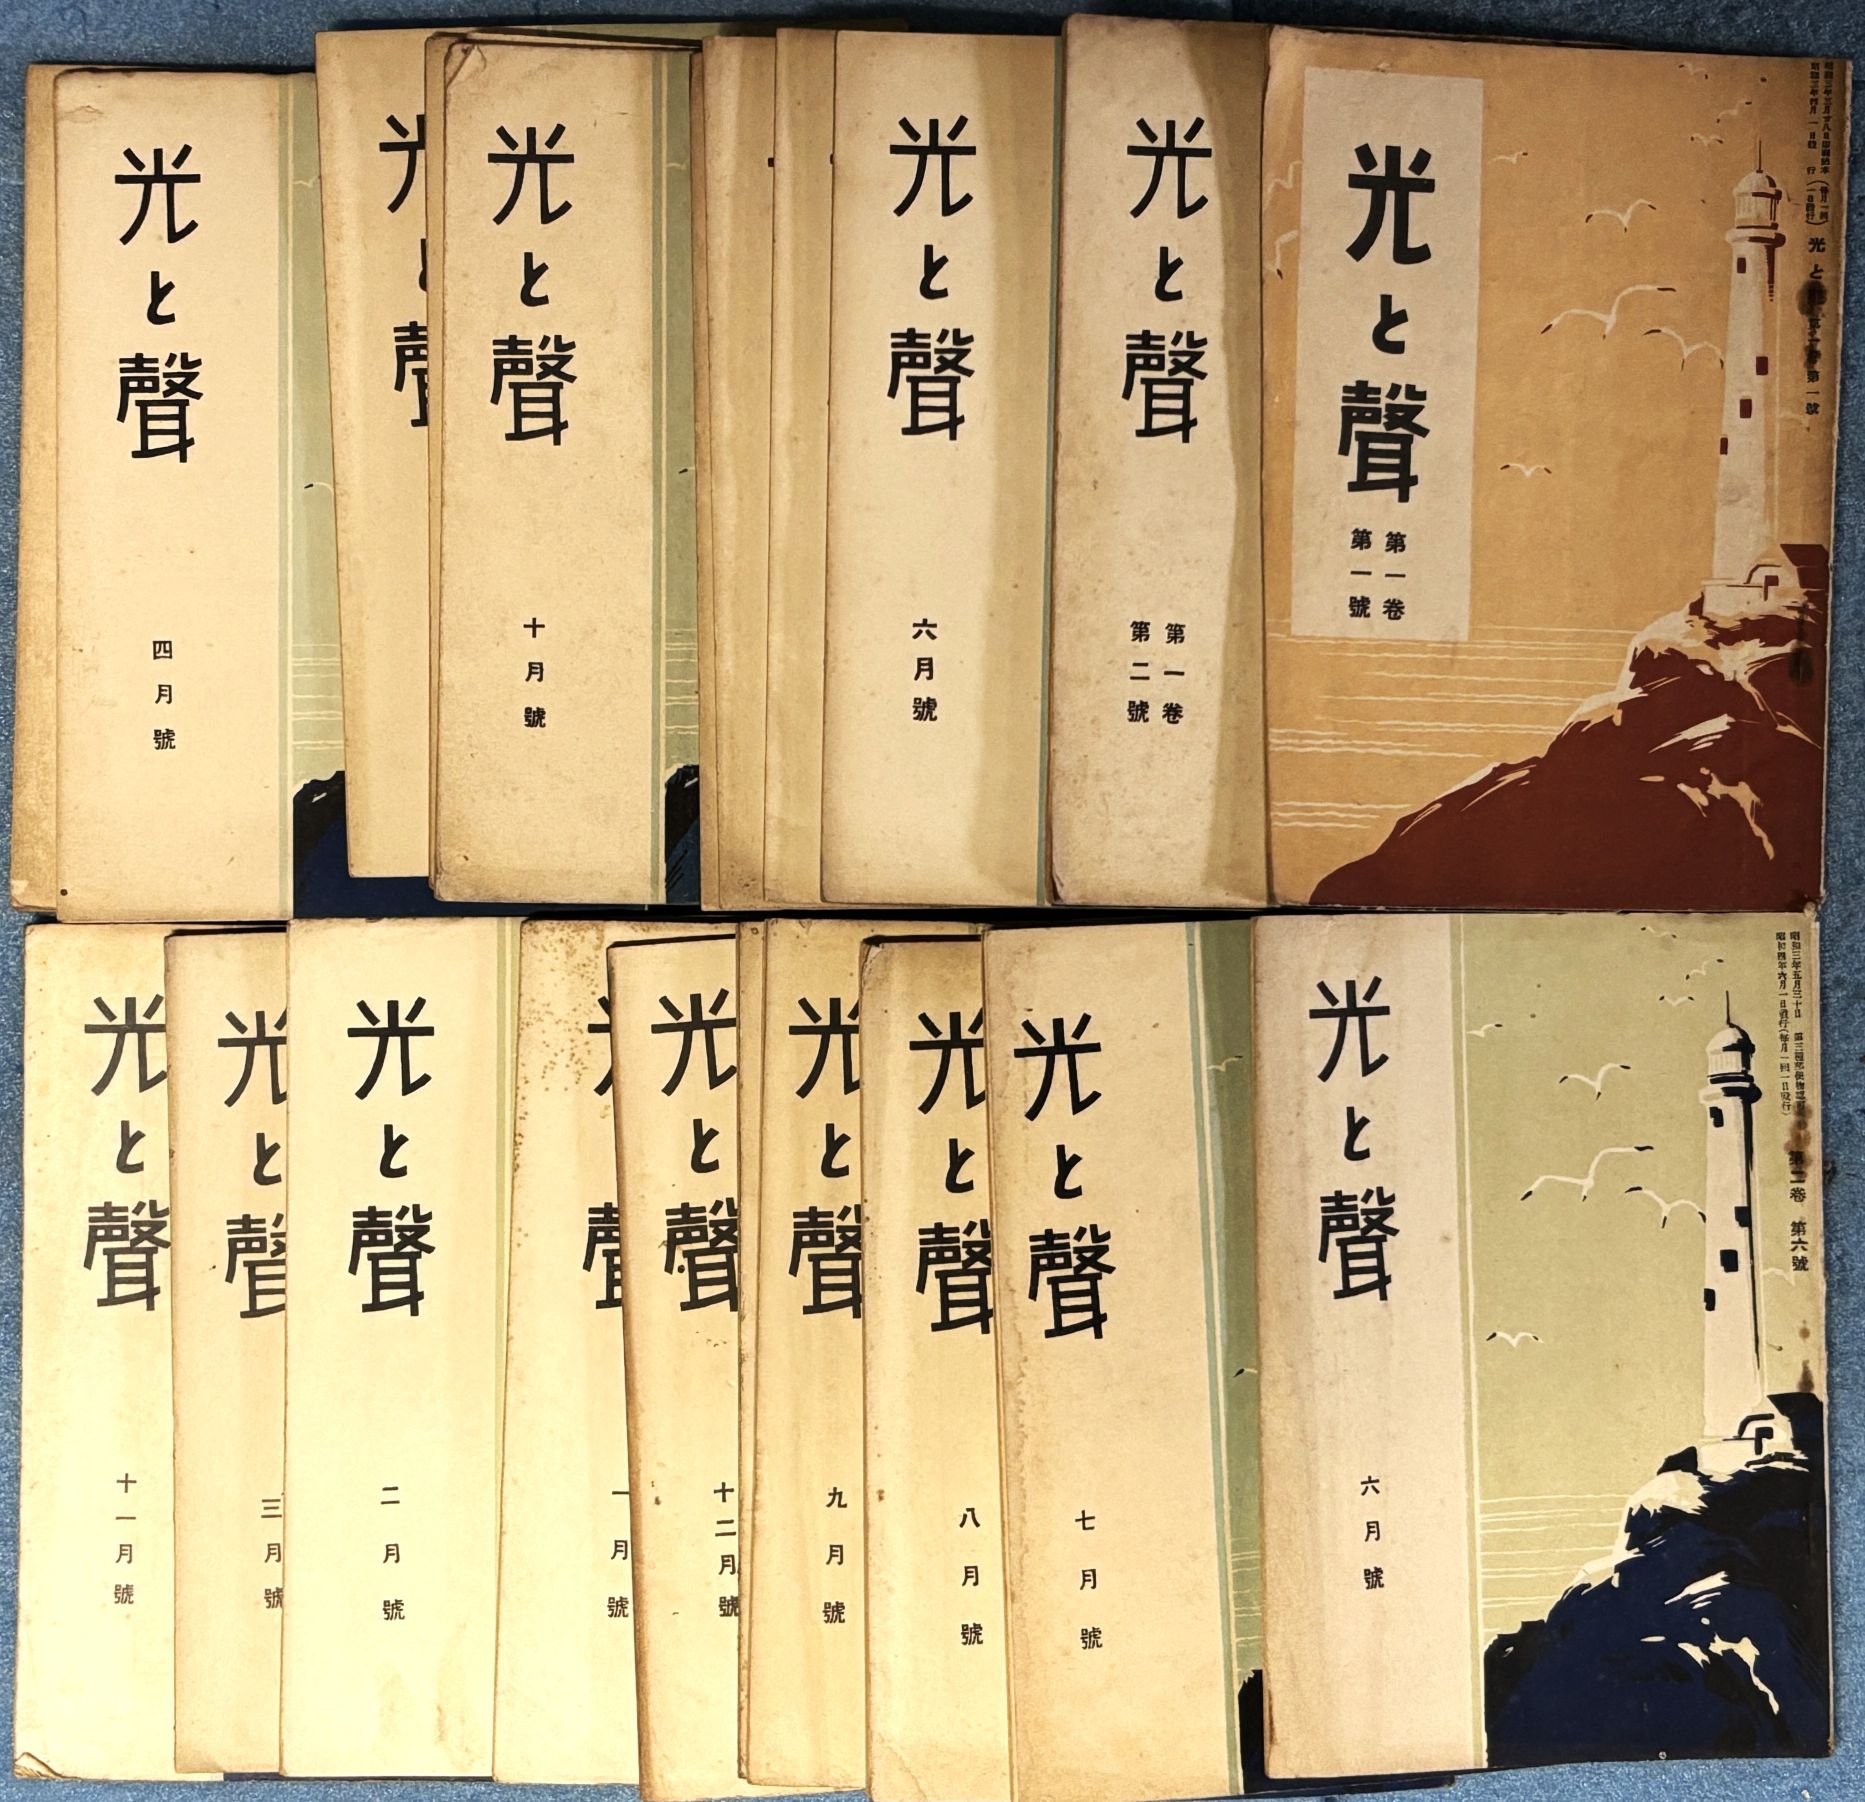 光と聲
第一卷
第一號
昭和三年三月廿八日印刷納本（每月一回
昭和三年四月一日發行
一日發行）
光と聲
第一卷
第二號
光と聲
六月號
光と聲
十月號
光と聲
光と聲
四月號
光と聲
六月號
昭和三年五月三十日
第三種郵便物認可
昭和四年六月一日發行（每月一回一日發行）
第二卷
第六號
光と聲
七月號
光と聲
八月號
光と聲
九月號
光と聲
十二月號
一月號
光と聲
二月號
光と聲
三月號
光と聲
十一月號